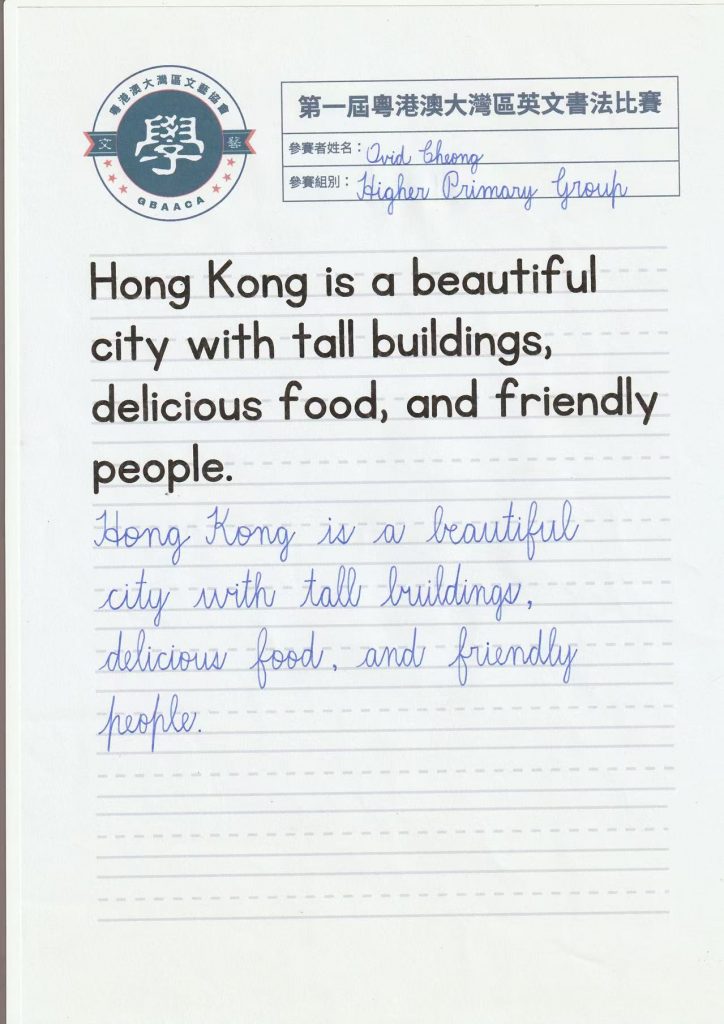 粵港澳大灣區文藝協會
文 學 藝
GBAACA
第一屆粵港澳大灣區英文書法比賽
參賽者姓名：Ovid Cheong
參賽組別：Higher Primary Group
Hong Kong is a beautiful
city with tall buildings,
delicious food, and friendly
people.
Hong Kong is a beautiful
city with tall buildings,
delicious food, and friendly
people.